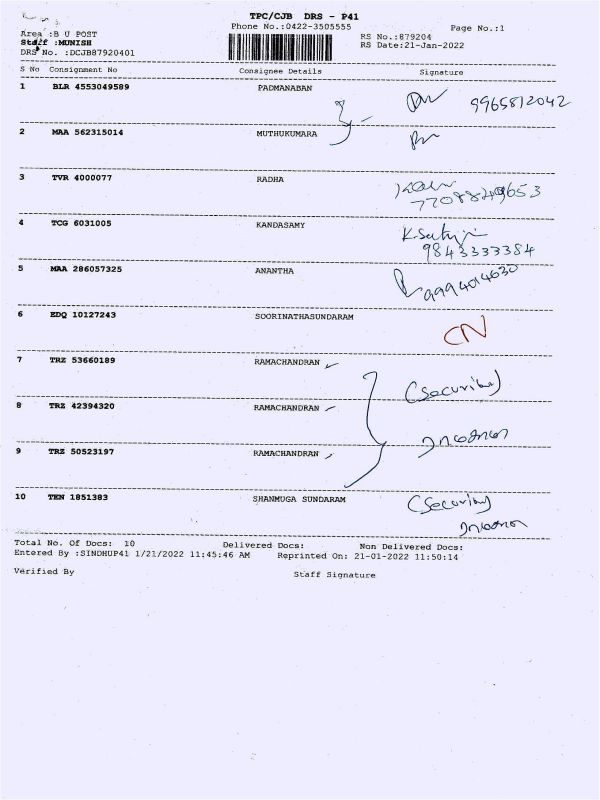 TPC/CJB DRS - P41
Phone No.:0422-3505555
Page No.:1
Area :B U POST
Staff :MUNISH
DRS No. :DCJB87920401
RS No.:879204
RS Date:21-Jan-2022
S No Consignment No Consignee Details Signature
1 BLR 4553049589 PADMANABAN 9965812042
2 MAA 562315014 MUTHUKUMARA
3 TVR 4000077 RADHA
7708849653
4 TCG 6031005 KANDASAMY
9843333384
5 MAA 286057325 ANANTHA
6 EDQ 10127243 SOORINATHASUNDARAM CN
7 TRZ 53660189 RAMACHANDRAN
(Security)
8 TRZ 42394320 RAMACHANDRAN
9 TRZ 50523197 RAMACHANDRAN
10 TEN 1851383 SHANMUGA SUNDARAM (Security)
Total No. Of Docs: 10 Delivered Docs: Non Delivered Docs:
Entered By :SINDHUP41 1/21/2022 11:45:46 AM Reprinted On: 21-01-2022 11:50:14
Verified By Staff Signature